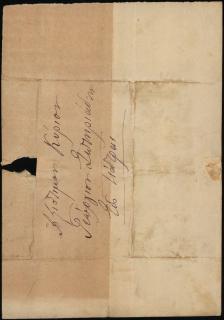 Ἀξιότιμον Κύριον
Γεώργιον Σωτηριάδην
Εἰς